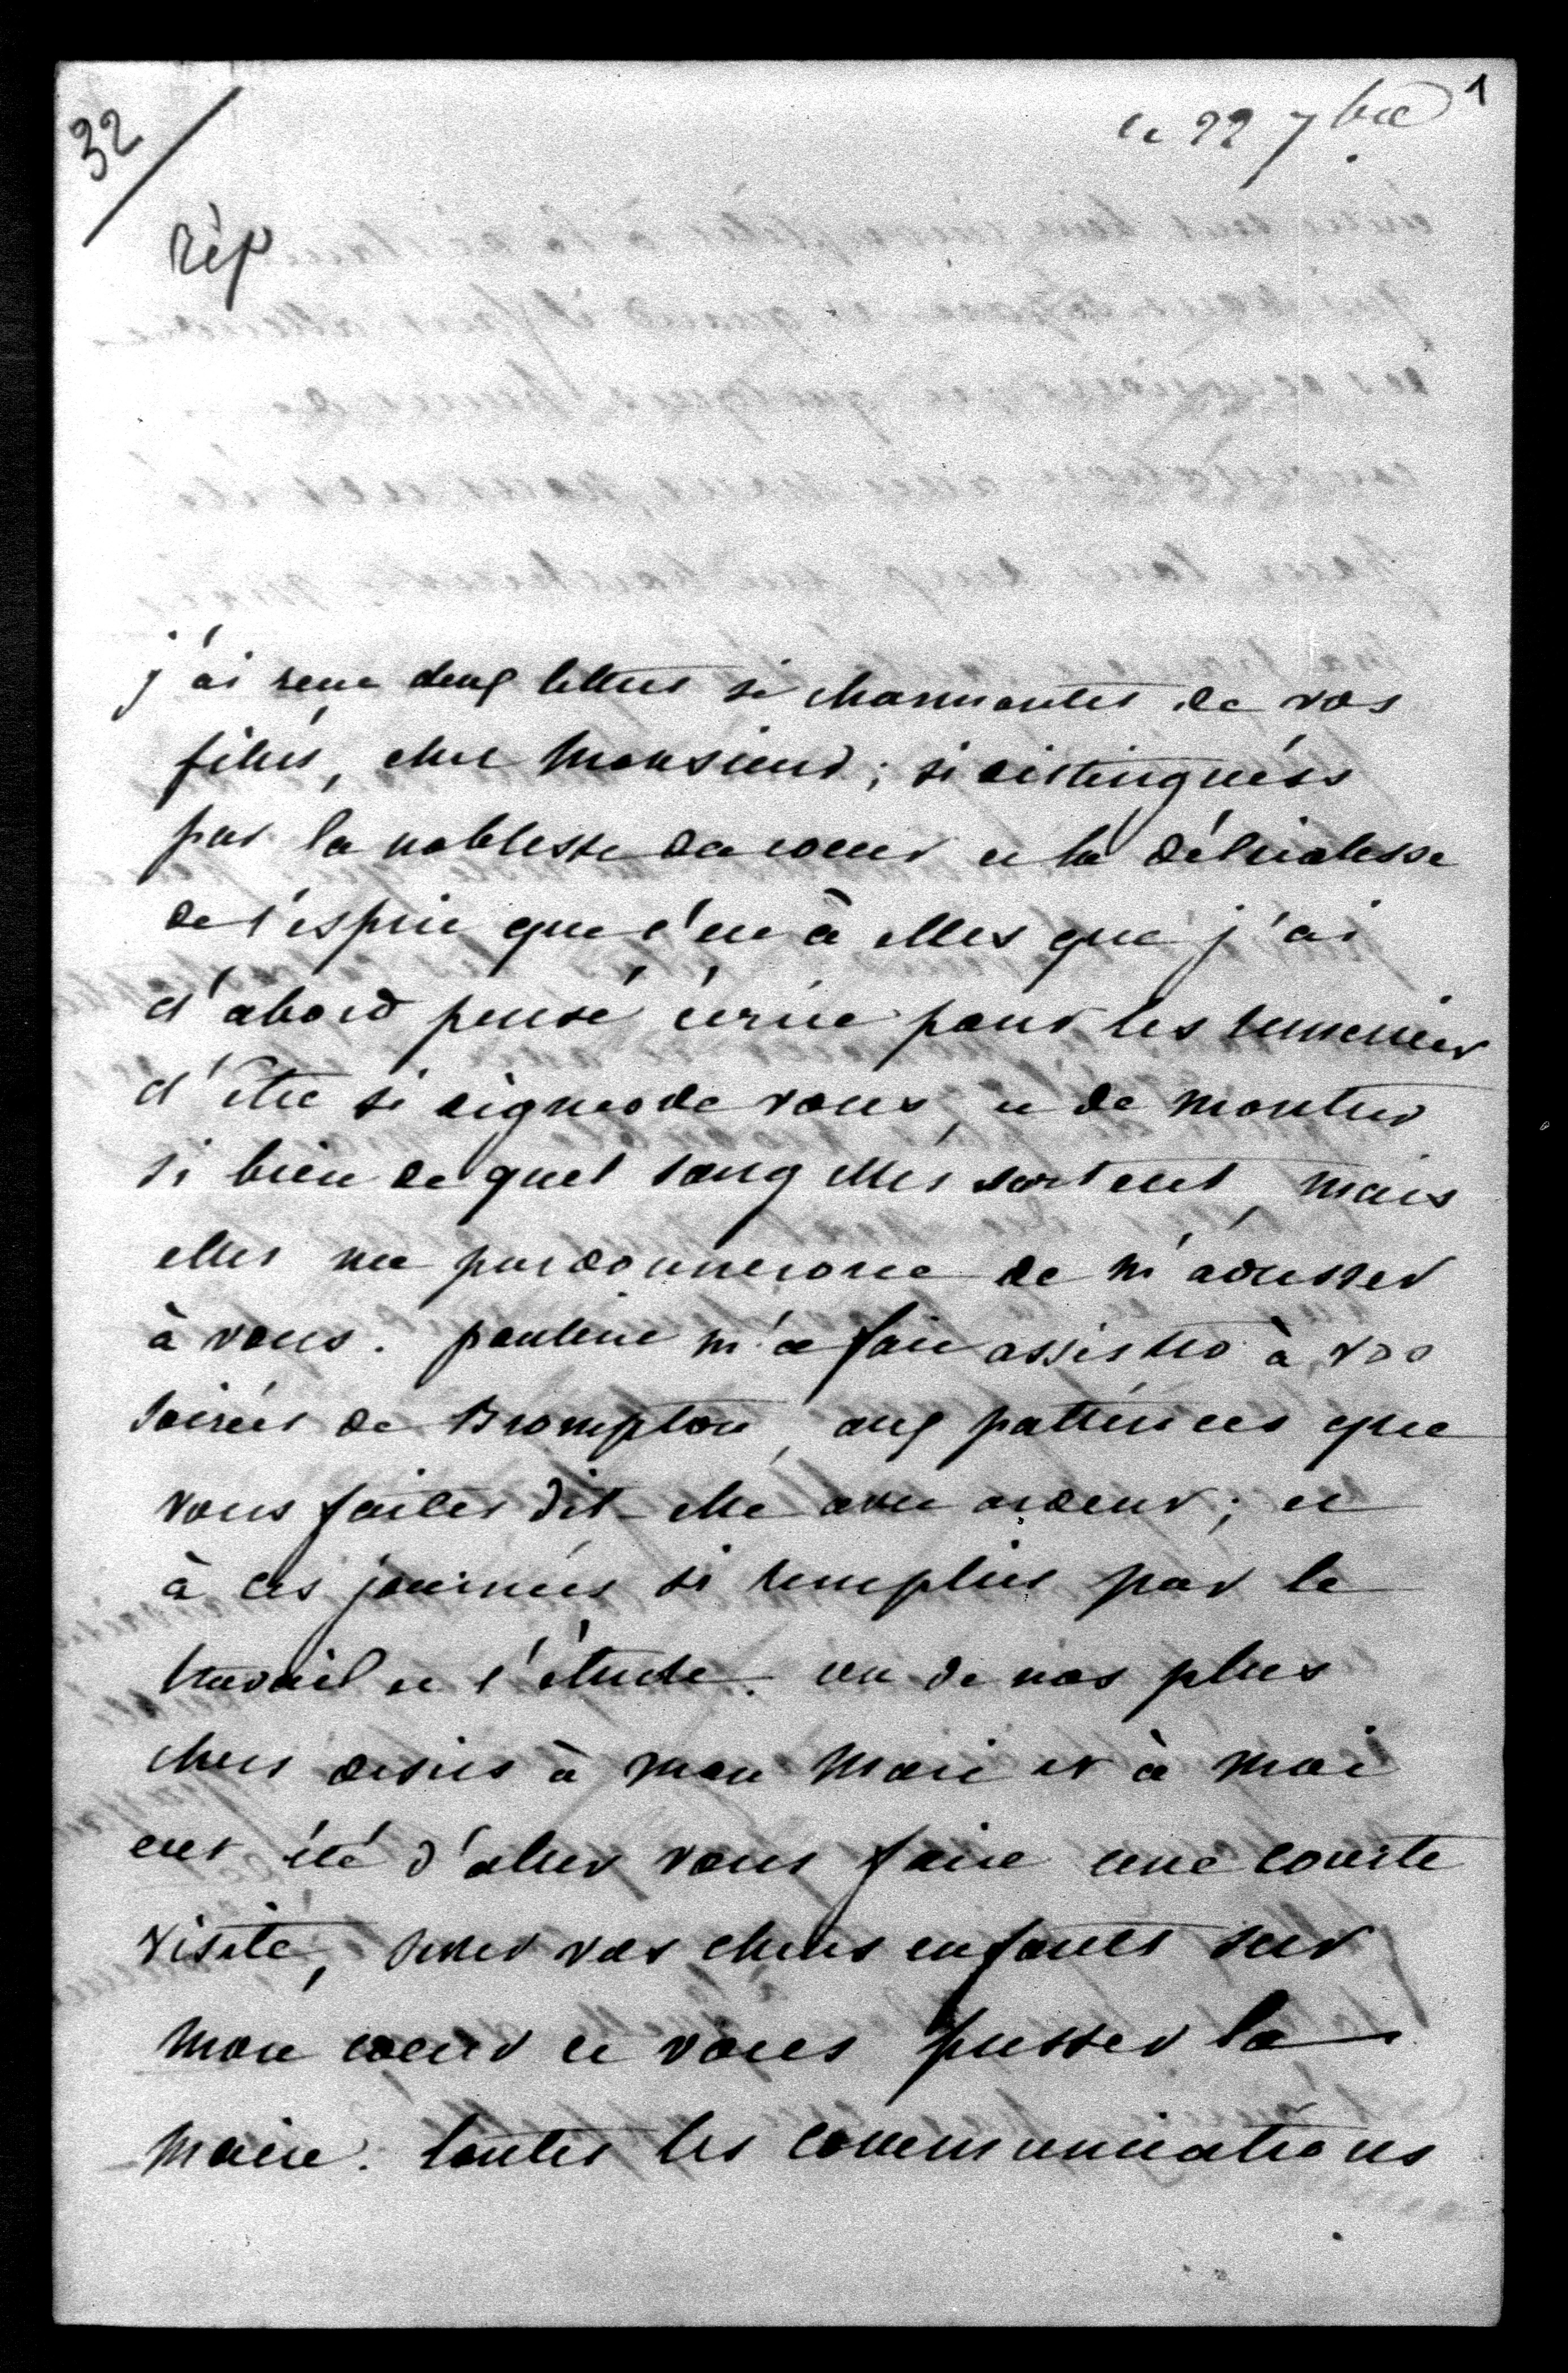 1
le 22 7bre
32
rép
j'ai reçu deux lettres si charmantes de vos
filles, cher Monsieur ; si distinguées
par la noblesse du coeur et la délicatesse
de l'esprit que c'est à elles que j'ai
d'abord pensé écrire pour les remercier
d'être si dignes de vous, et de montrer
si bien de quel sang elles sortent, mais
elles me pardonneront de m'adresser
à vous. pauline m'a fait assister à vos
soirées de Brompton, aux patiences que
vous faites dit-elle avec ardeur ; et
à ces journées si remplies par le
travail et l'étude. un de nos plus
chers désirs à mon Mari et à Moi
eut été d'aller vous faire une courte
visite, serrer vos chers enfants sur
mon coeur et vous presser la
main. toutes les communications